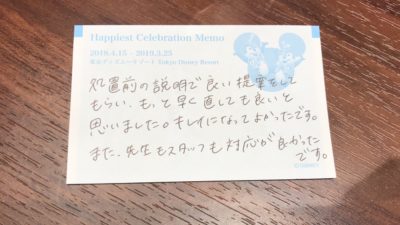 Happiest Celebration Memo
2018.4.15 - 2019.3.25
東京ディズニーリゾート Tokyo Disney Resort
処置前の説明で良い提案をして
もらい、もっと早く直しても良いと
思いました。キレイになってよかったです。
また、先生もスタッフも対応が良かった
です。
©Disney